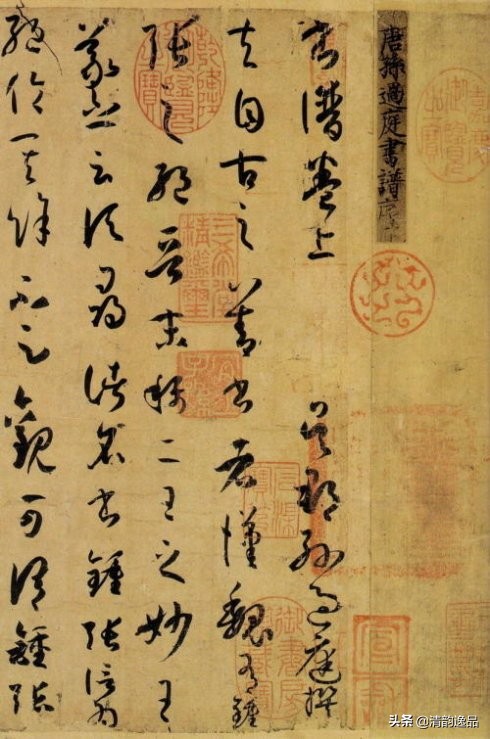 唐孫過庭書譜序
書譜卷上 吳郡孫過庭撰
夫自古之善書者漢魏有鍾
張之絕晉末稱二王之妙王
羲之云頃尋諸名書鍾張信為
絕倫其餘不足觀可謂鍾張
嘉慶御覽之寶
三希堂精鑑璽
宜子孫
头条 @清韵逸品